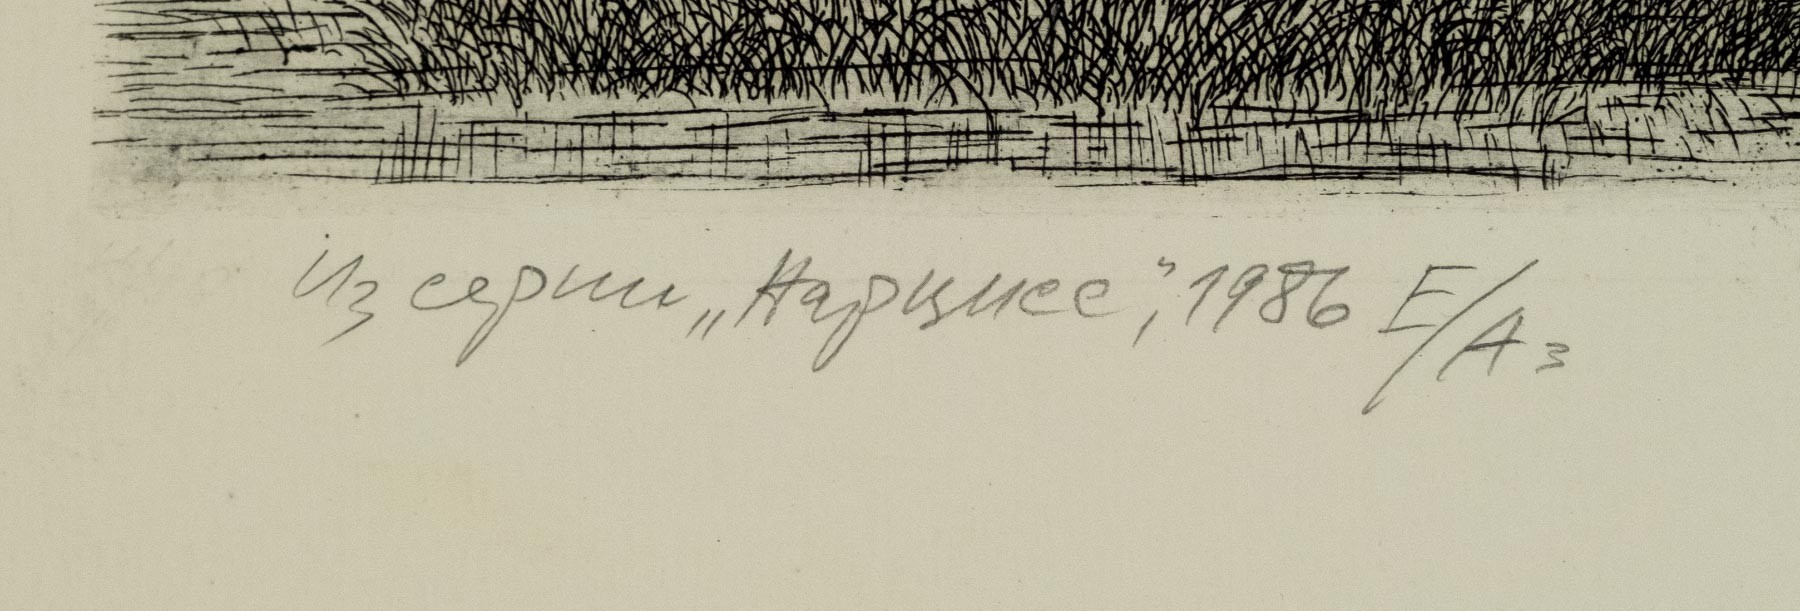 Из серии „Нарцисс", 1986 E/A 3